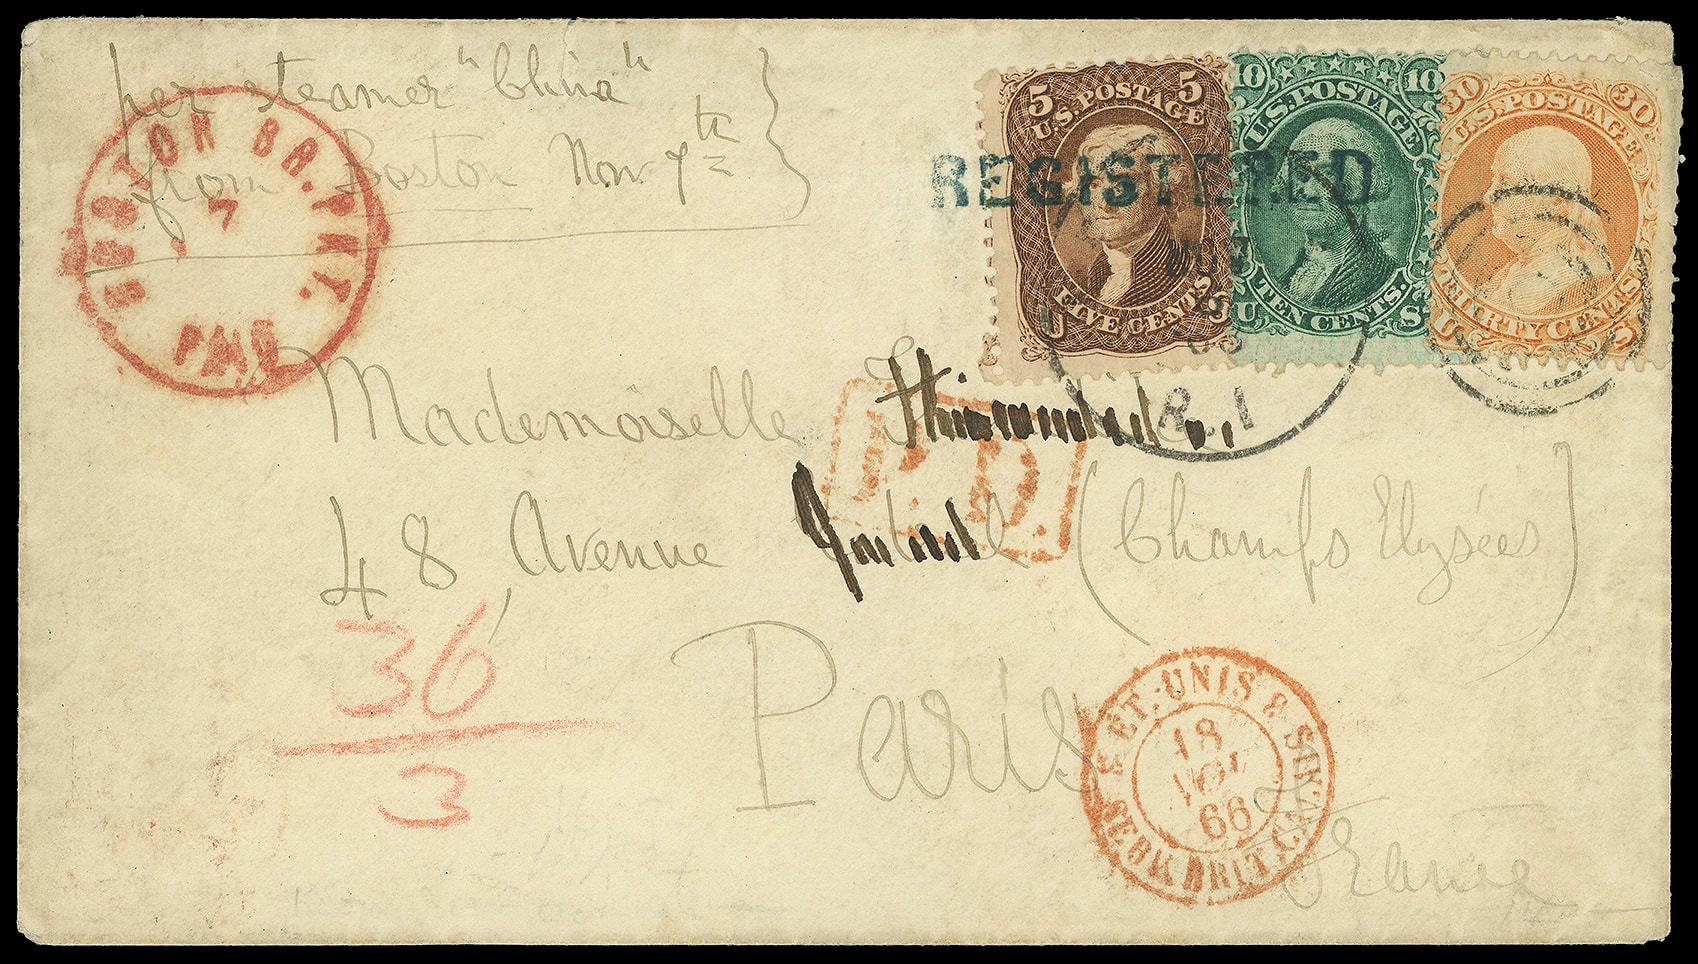 per steamer "China"
from Boston Nov 7th
BOSTON BR. PKT.
7
PAID
5 5
U.S. POSTAGE
FIVE CENTS
U S
10 10
U.S. POSTAGE
TEN CENTS.
U S
30 30
U.S. POSTAGE
THIRTY CENTS
U S
REGISTERED
R. I
Mademoiselle
P.D.
48, Avenue (Champs Elysées)
36
3
Paris
France
ET. UNIS & SERV. BRIT. CAL.
18
NOV.
66